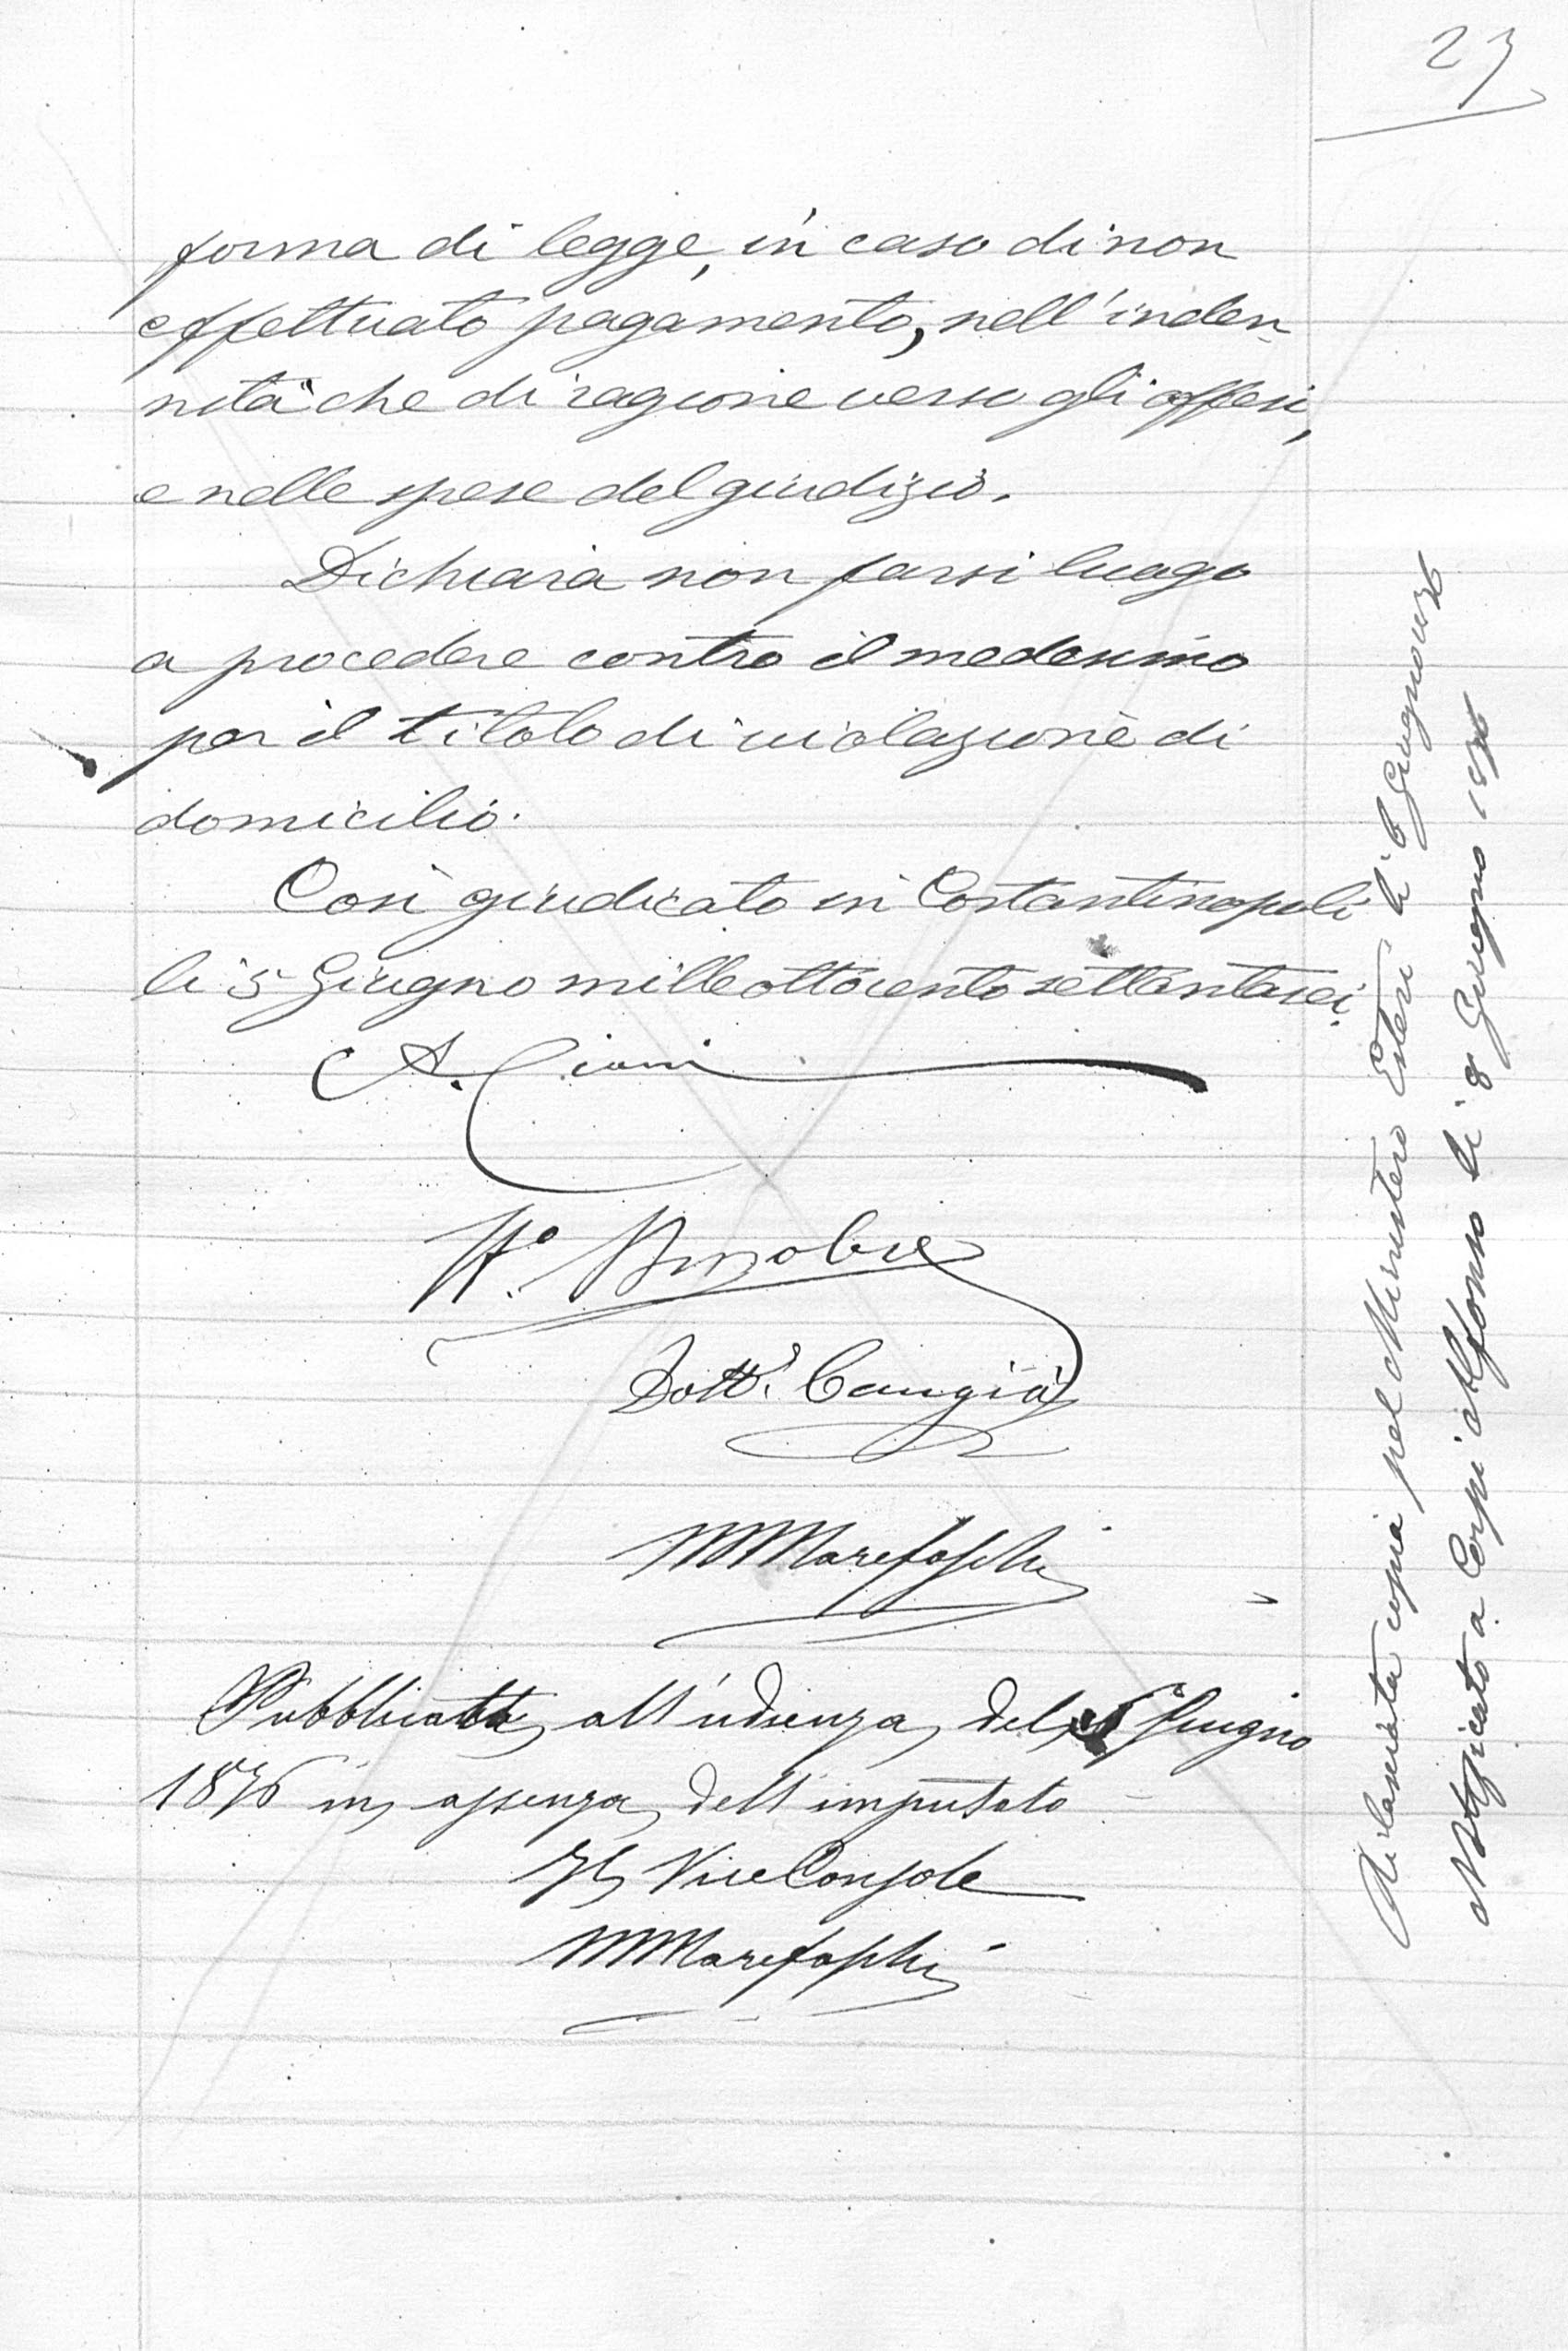 23
forma di legge, in caso di non
effettuato pagamento, nell'inden
nità che di ragione verso gli offesi,
e nelle spese del giudizio.
Dichiara non farsi luogo
a procedere contro il medesimo
per il titolo di violazione di
domicilio.
Così giudicato in Costantinopoli
li 5 Giugno mille ottocento settantasei.
A.
Dott. Cangià
M Marefoschi
Pubblicata all'udienza del 5 Giugno
1876 in assenza dell'imputato
Il ViceConsole
M Marefoschi
Rilasciata copia pel Ministero Esteri li 6 Giugno 1876
Notificato a Corpi Alfonso li 8 Giugno 1876